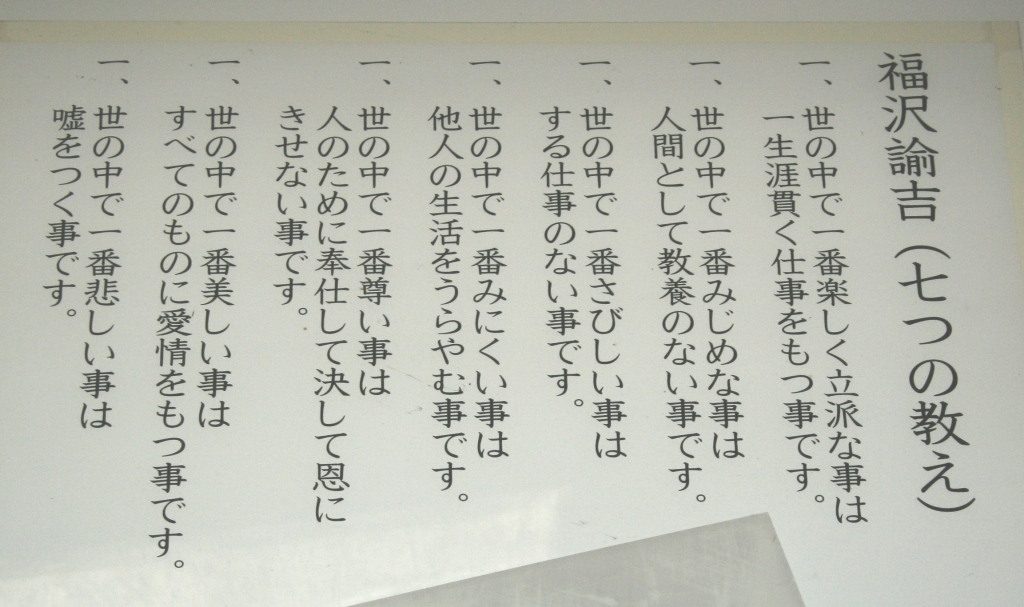 福沢諭吉(七つの教え)
一、世の中で一番楽しく立派な事は
一生涯貫く仕事をもつ事です。
一、世の中で一番みじめな事は
人間として教養のない事です。
一、世の中で一番さびしい事は
する仕事のない事です。
一、世の中で一番みにくい事は
他人の生活をうらやむ事です。
一、世の中で一番尊い事は
人のために奉仕して決して恩に
きせない事です。
一、世の中で一番美しい事は
すべてのものに愛情をもつ事です。
一、世の中で一番悲しい事は
嘘をつく事です。